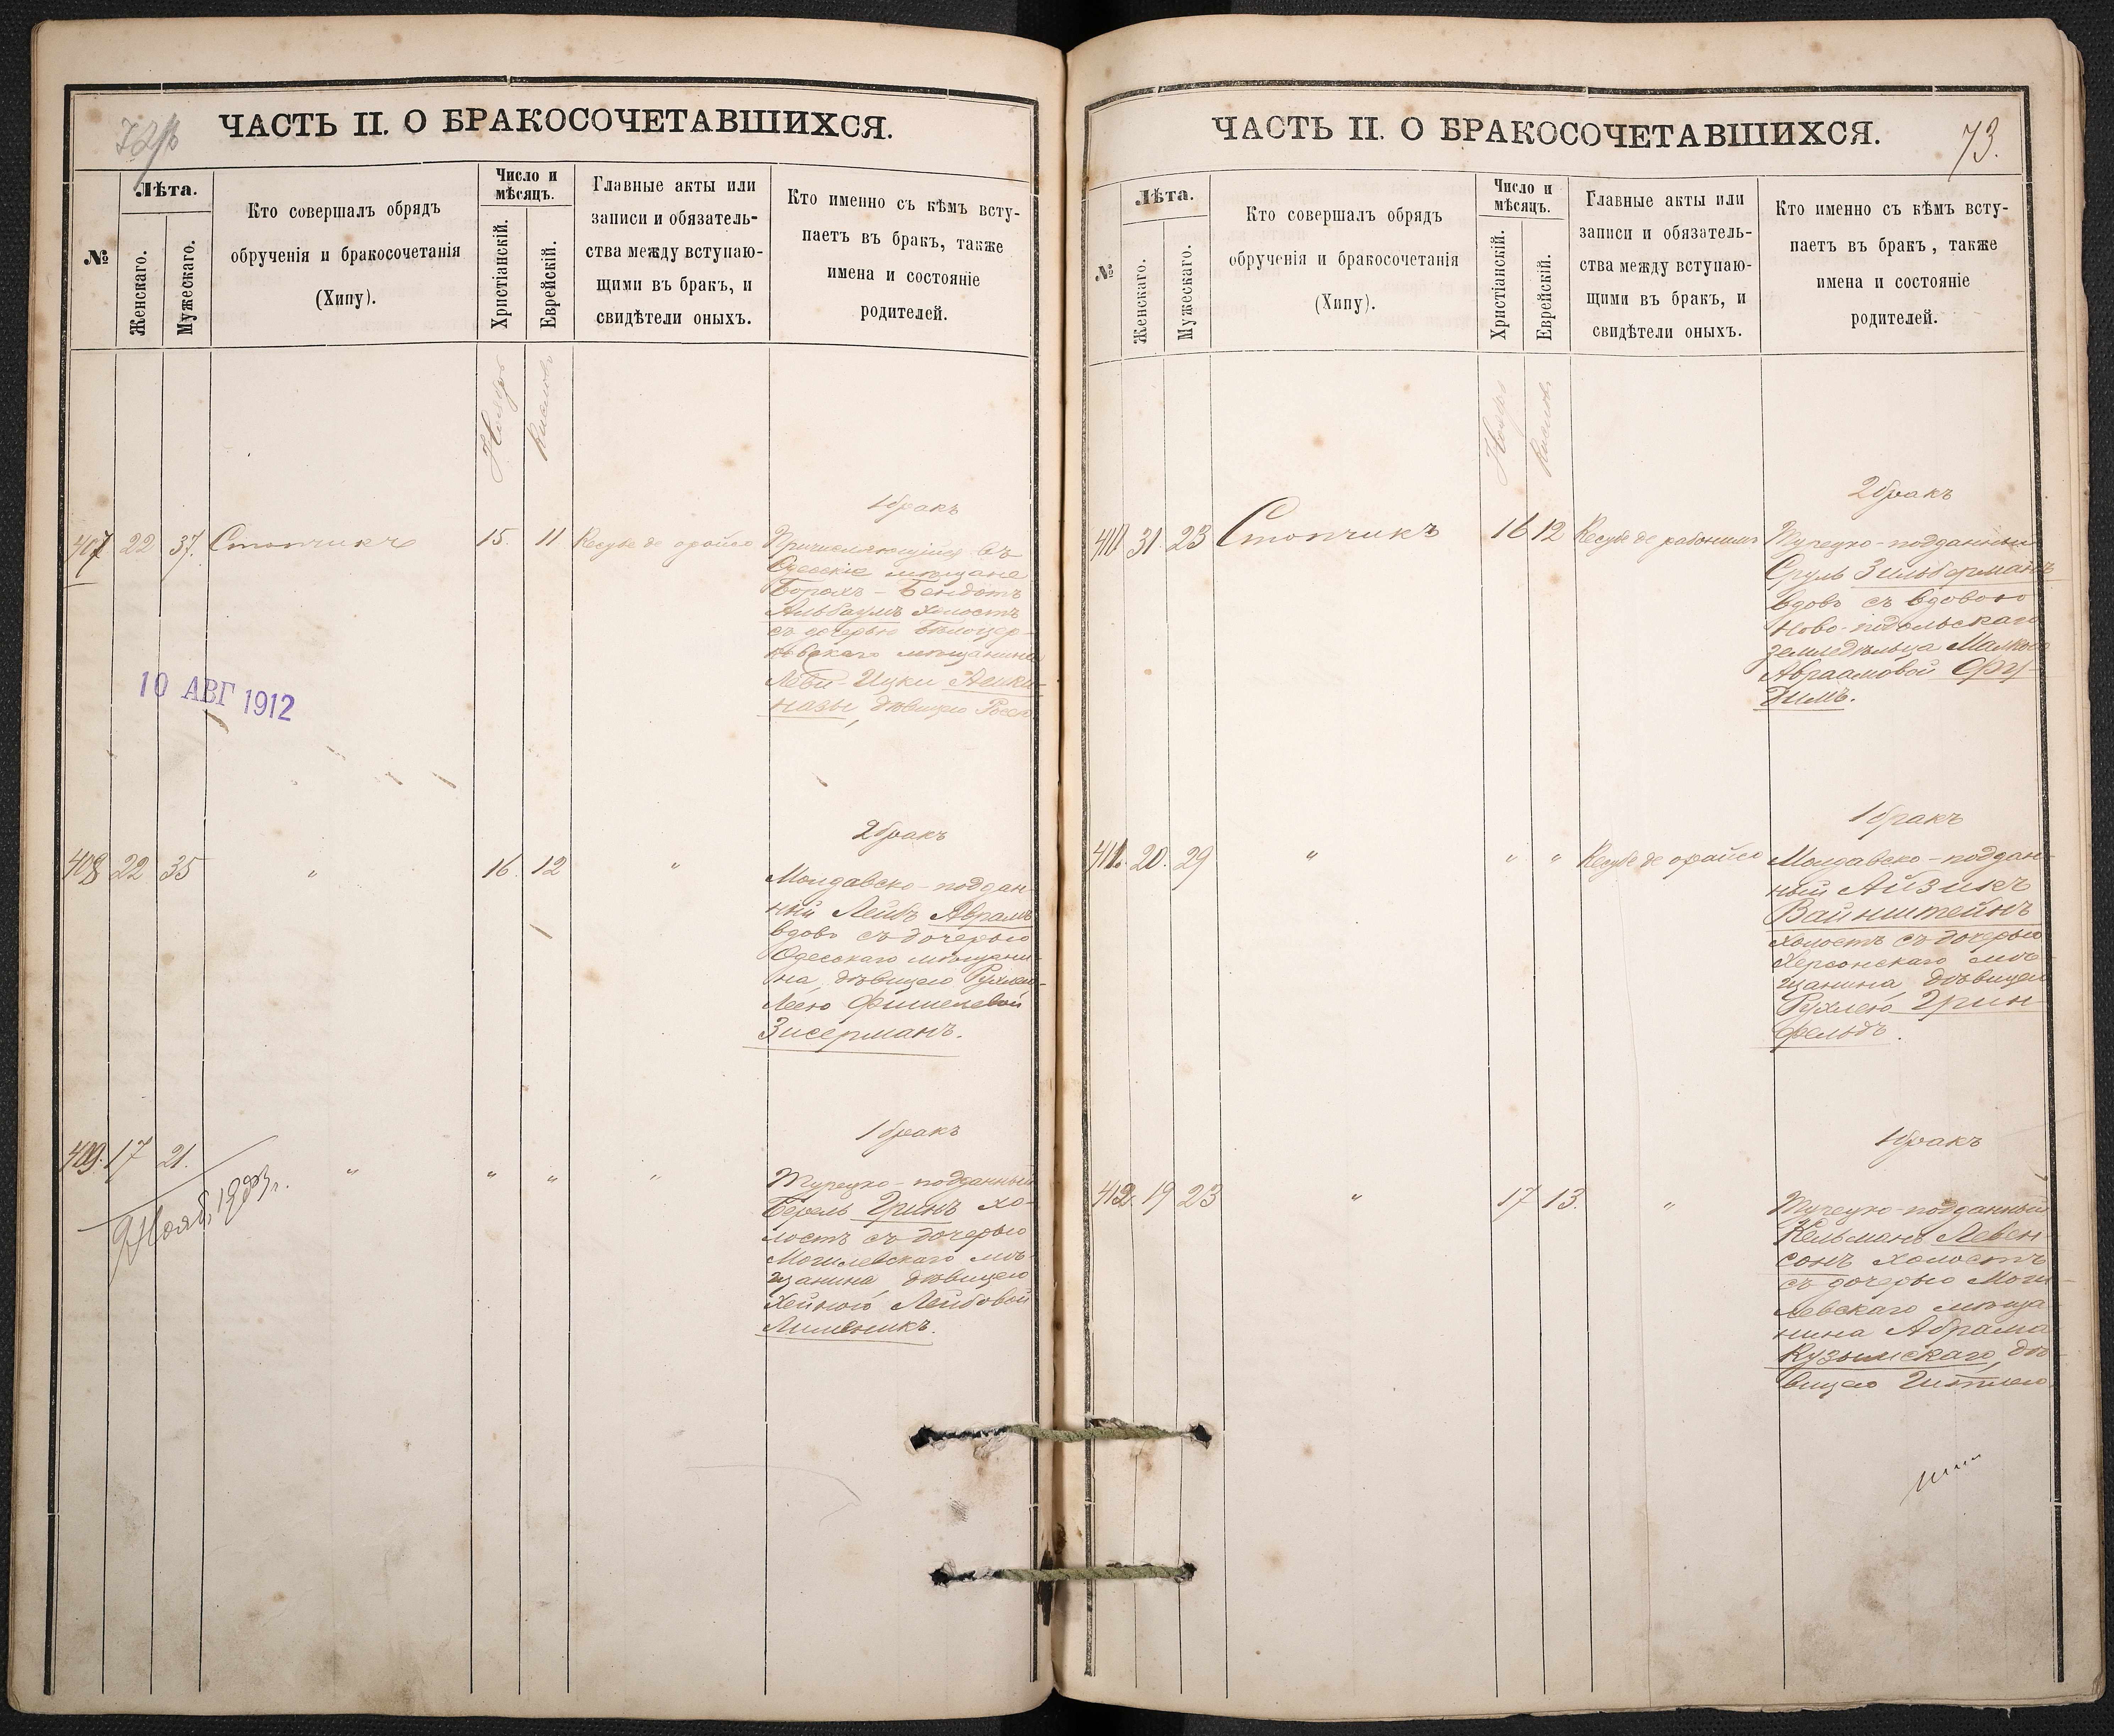 ЧАСТЬ II. О БРАКОСОЧЕТАВШИХСЯ.
№
Лѣта.
Женскаго.
Мужескаго.
Кто совершалъ обрядъ
обрученія и бракосочетанія
(Хипу).
Число и
мѣсяцъ.
Христіанскій.
Еврейскій.
Главные акты или
записи и обязатель-
ства между вступаю-
щими въ бракъ, и
свидѣтели оныхъ.
Кто именно съ кѣмъ всту-
паетъ въ бракъ, также
имена и состояніе
родителей.
Ноябрь
Кислевъ
1 бракъ
407 22 37. Стопчикъ 15. 11 Кесубе де орайсо Причисляющійся въ
Одесскіе мѣщане
Борохъ-Бендетъ
Альбаумъ холостъ
съ дочерью Бѣлоцер-
ковскаго мѣщанина
Лейби-Ицки Ашки-
назы, дѣвицею
10 АВГ 1912
2 бракъ
408 22 35 " 16. 12 " Молдавско-поддан-
ный Лейбъ Аврамъ
вдовъ съ дочерью
Одесскаго мѣщани-
на, дѣвицею Рухлею-
Леею Фишелевой
Зисерманъ.
1 бракъ
409. 17 21. " " " " Турецко-подданный
Берель Гринъ хо-
лостъ съ дочерью
Могилевскаго мѣ-
щанина, дѣвицею
Хейною Лейбовой
ЧАСТЬ II. О БРАКОСОЧЕТАВШИХСЯ.
73.
№
Лѣта.
Женскаго.
Мужескаго.
Кто совершалъ обрядъ
обрученія и бракосочетанія
(Хипу).
Число и
мѣсяцъ.
Христіанскій.
Еврейскій.
Главные акты или
записи и обязатель-
ства между вступаю-
щими въ бракъ, и
свидѣтели оныхъ.
Кто именно съ кѣмъ всту-
паетъ въ бракъ, также
имена и состояніе
родителей.
Ноябрь
Кислевъ
2 бракъ
410 31 23 Стопчикъ 16 12 Кесубе де рабонимъ Турецко-подданный
Сруль Зильберманъ
вдовъ съ вдовою
Ново-подольскаго
земледѣльца Малкою
Авраамовой
1 бракъ
411. 20. 29 " " " Кесубе де орайсо Молдавско-поддан-
ный Айзикъ
Вайнштейнъ
холостъ съ дочерью
Херсонскаго мѣ-
щанина, дѣвицею
Рухлею Грин-
фельдъ.
1 бракъ
412. 19 23 " 17 13. " Турецко-подданный
Кельманъ Левен-
сонъ холостъ
съ дочерью Моги-
левскаго мѣща-
нина Абрама
Кузымскаго, дѣ-
вицею Гитлею